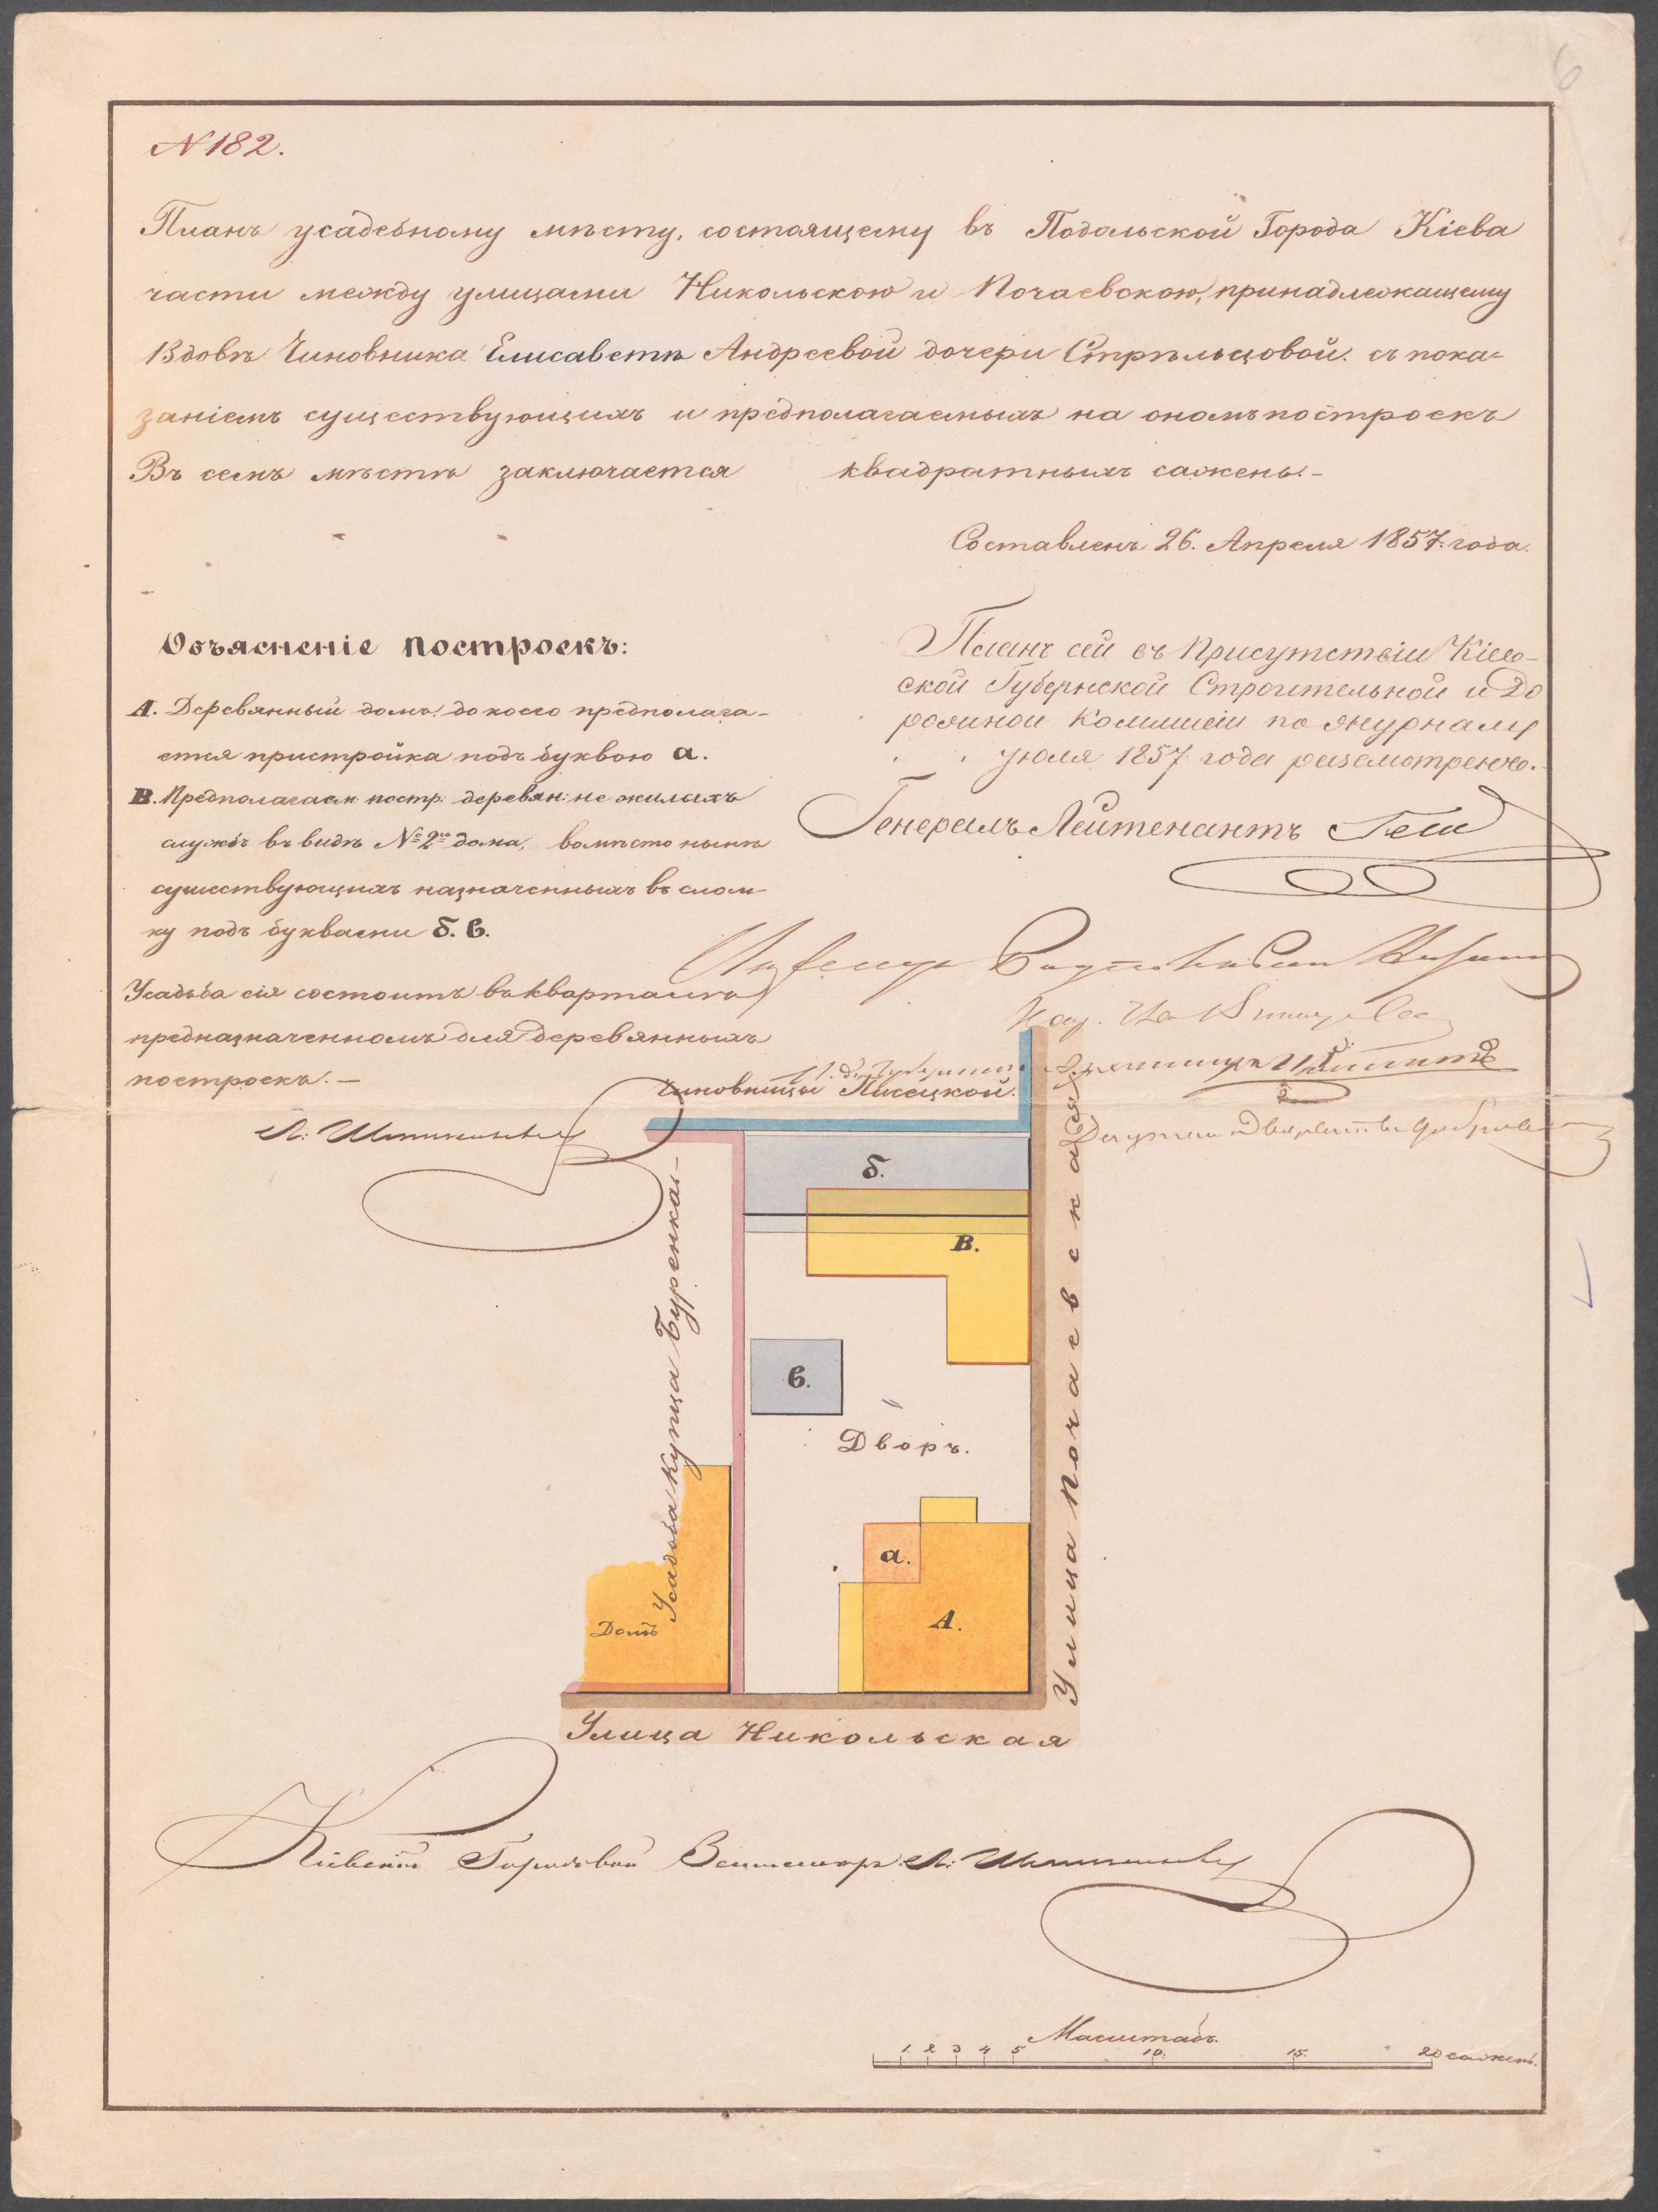 6
N 182.
Планъ усадебному мѣсту, состоящему въ Подольской Города Кіева
части между улицами Никольскою и Почаевскою, принадлежащему
Вдовѣ Чиновника Елисаветѣ Андреевой дочери Стрѣльцовой. съ пока=
заніемъ существующихъ и предполагаемыхъ на ономъ построекъ
Въ семъ мѣстѣ заключается квадратныхъ сажень.-
Составленъ 26. Апреля 1857: года.
Объясненіе построекъ:
А. Деревянный домъ, до коего предполага-
ется пристройка подъ буквою а.
В. Предполагаем: постр: деревян: не жилыхъ
службъ въ видѣ № 2го дома, вомѣсто нынѣ
существующихъ назначенныхъ въ слом-
ку подъ буквами б. в.
Усадьба сія состоитъ въ квартале
предназначенномъ для деревянныхъ
построекъ. —
Планъ сей въ Присутствіи Кіев-
ской Губернской Строительной и До
рожной Коммисіи по журналу
Іюля 1857 года разсмотренъ.-
Генералъ Лейтенантъ Гессе
Чиновницы Писецкой.
б.
В.
в.
Дворъ.
а.
А.
Домъ
Усадьба Купца Буренка.-
Улица Почаевская
Улица Никольская
Кіевскій Городовой Землемеръ
Масштабъ.
1 2 3 4 5 10. 15. 20 сажень.